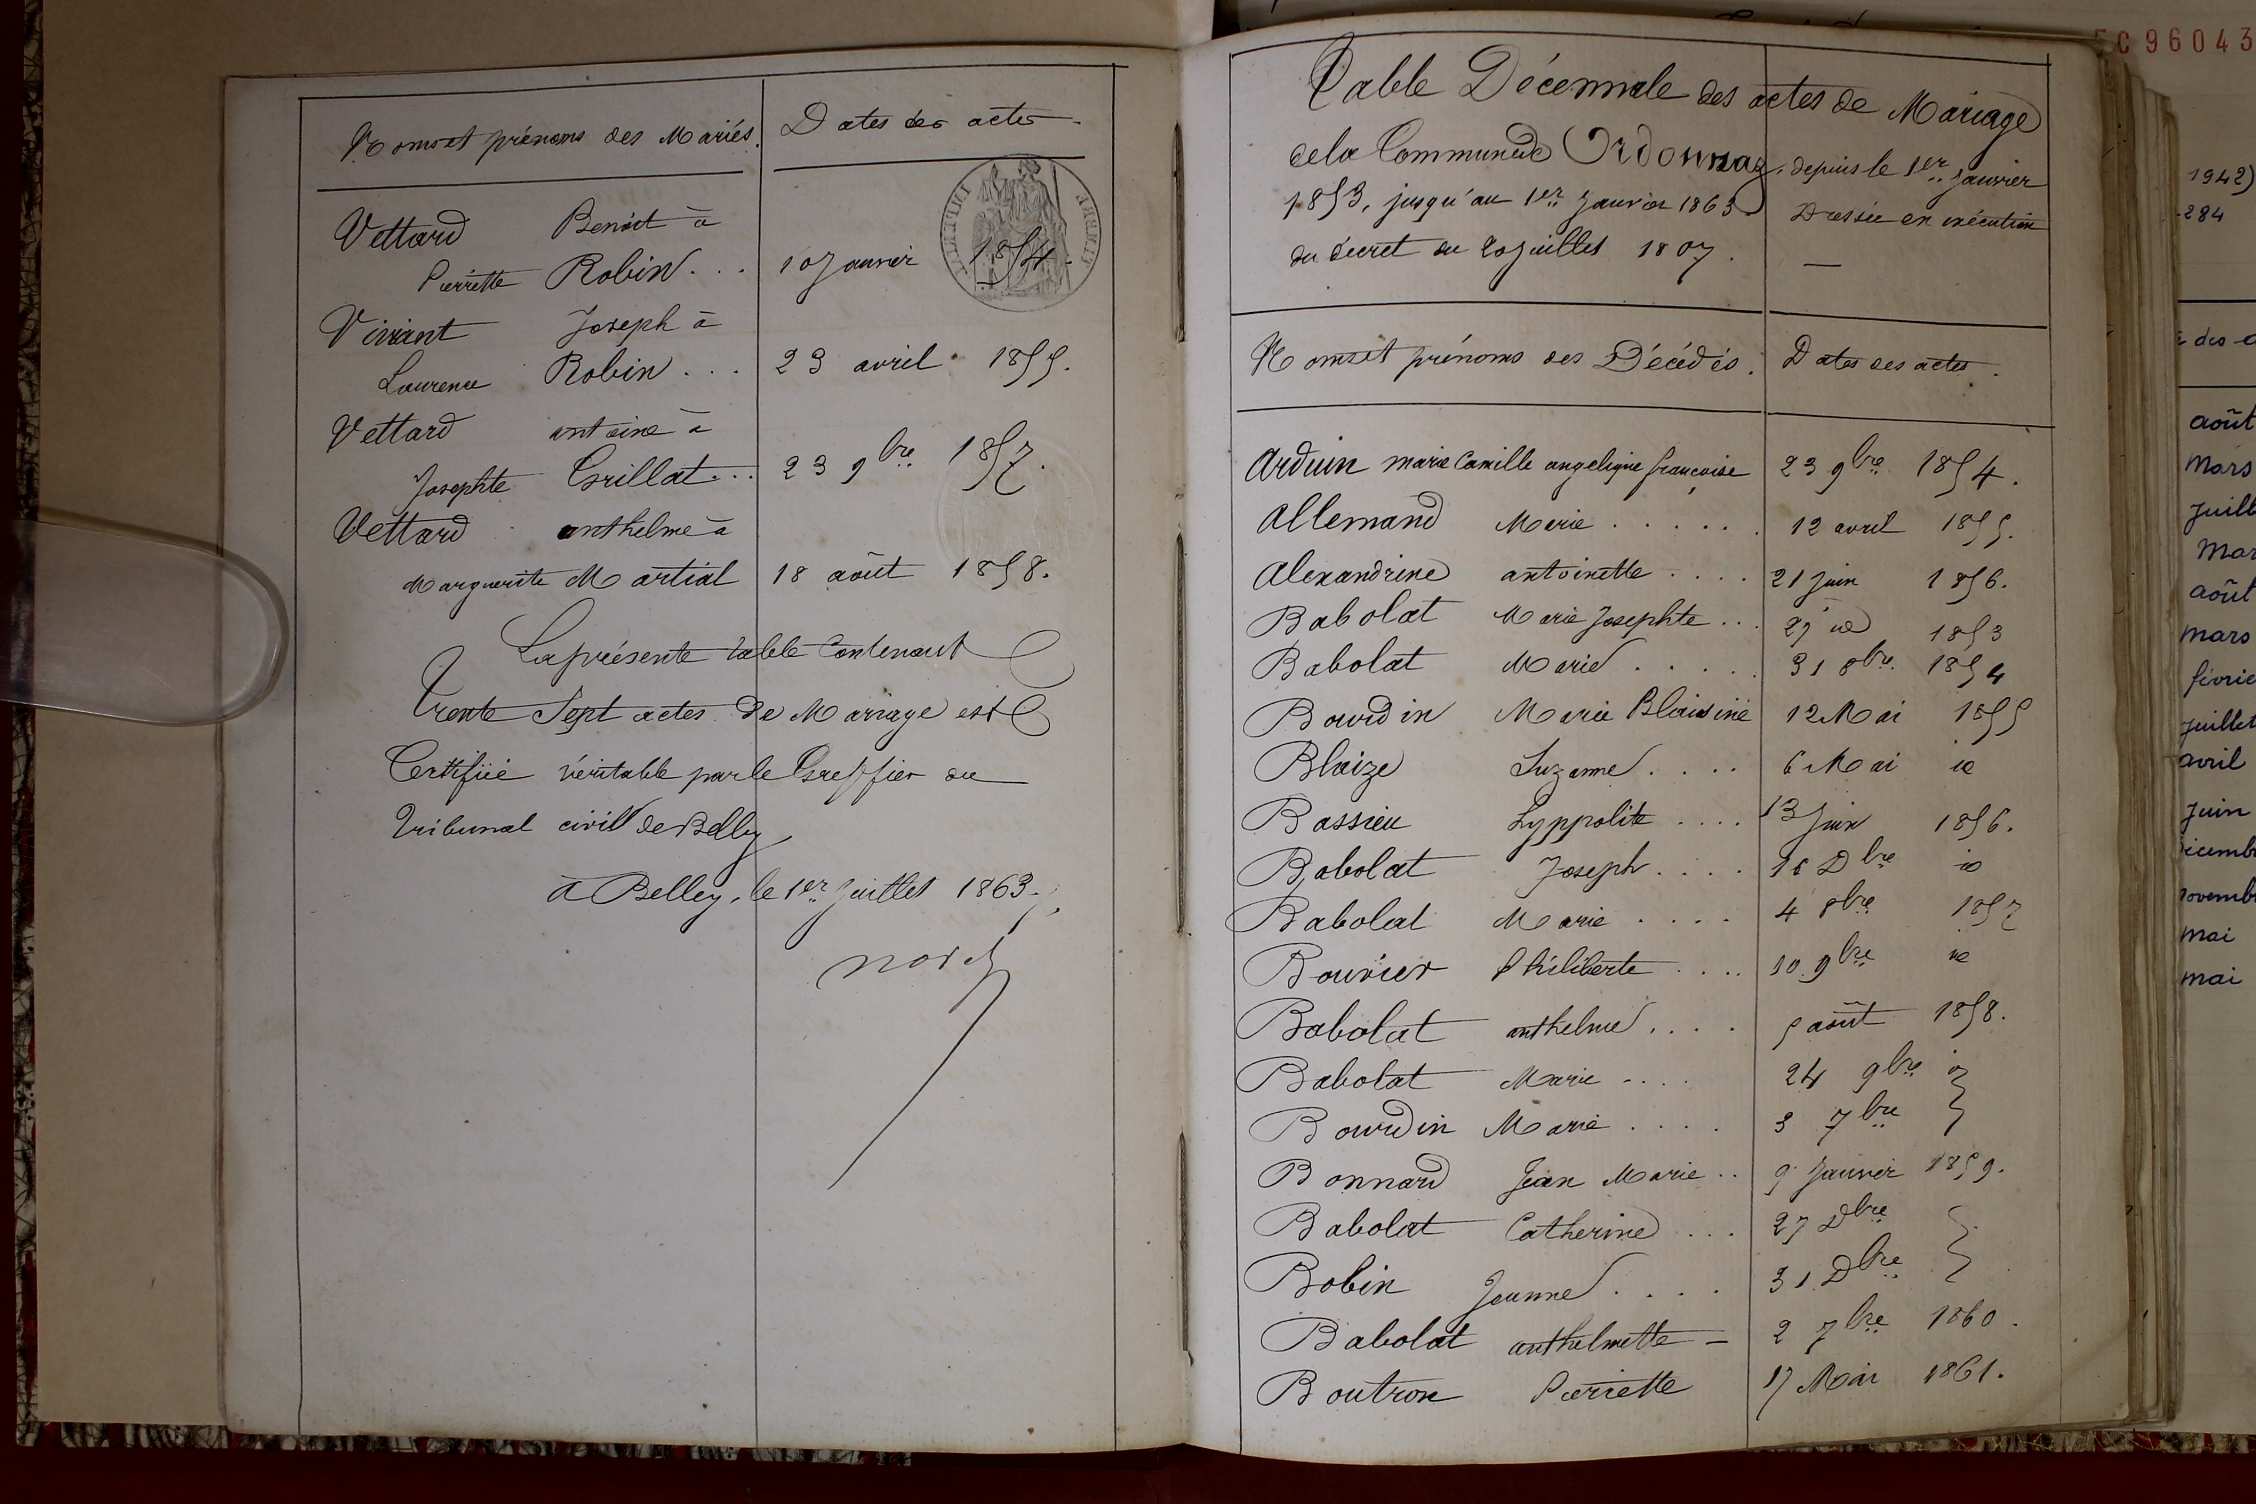 Noms et prénoms des Mariés. Dates des actes.
Vettard Benoit à
Pierrette Robin... 10 Janvier 1854.
Viviant Joseph à
Laurence Robin... 23 avril 1855.
Vettard antoine à
Josephte Grillat... 23 9bre 1857.
Vettard anthelme à
Marguerite Martial 18 août 1858.
La présente table contenant
Trente Sept actes de Mariage est
Certifiée véritable par le Greffier du
Tribunal civil de Belley
à Belley, le 1er Juillet 1863.
Table Décennale des actes de Mariage
de la Commune de Ordonnaz, depuis le 1er Janvier
1853, jusqu'au 1er Janvier 1863. Dressée en exécution
du décret du 20 juillet 1807.
Noms et prénoms des Décédés. Dates des actes.
Arduin marie Camille angelique françoise 23 9bre 1854.
Allemand Marie..... 12 avril 1855.
Alexandrine antoinette.... 21 Juin 1856.
Babolat Marie Josephte... 27 id 1853
Babolat Marie..... 31 8bre 1854
Bourdin Marie Blaisine 12 Mai 1855
Blaize Suzanne.... 6 Mai id
Bassieu hyppolite.... 13 Juin 1856.
Babolat Joseph.... 16 Dbre id
Babolat Marie.... 4 8bre 1857
Bouvier Philiberte.... 10 9bre id
Babolat anthelme.... 5 août 1858.
Babolat Marie.... 24 9bre id
Bourdin Marie.... 3 7bre
Bonnard Jean Marie.. 9 Janvier 1859.
Babolat Catherine... 27 Dbre
Bobin Jeanne.... 31 Dbre
Babolat anthelmette - 2 7bre 1860.
Boutron Pierrette 17 Mai 1861.
EC96043
1942)
284
août
Mars
Juill
Mar
août
mars
févrie
juillet
avril
Juin
novemb
mai
mai